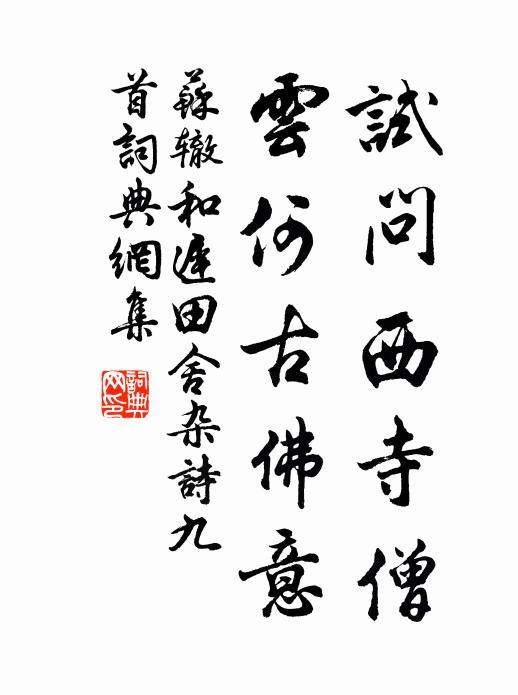 試問西寺僧
雲何古佛意
蘇辙和遲田舍杂詩九
首詞典網集
詞典
网印